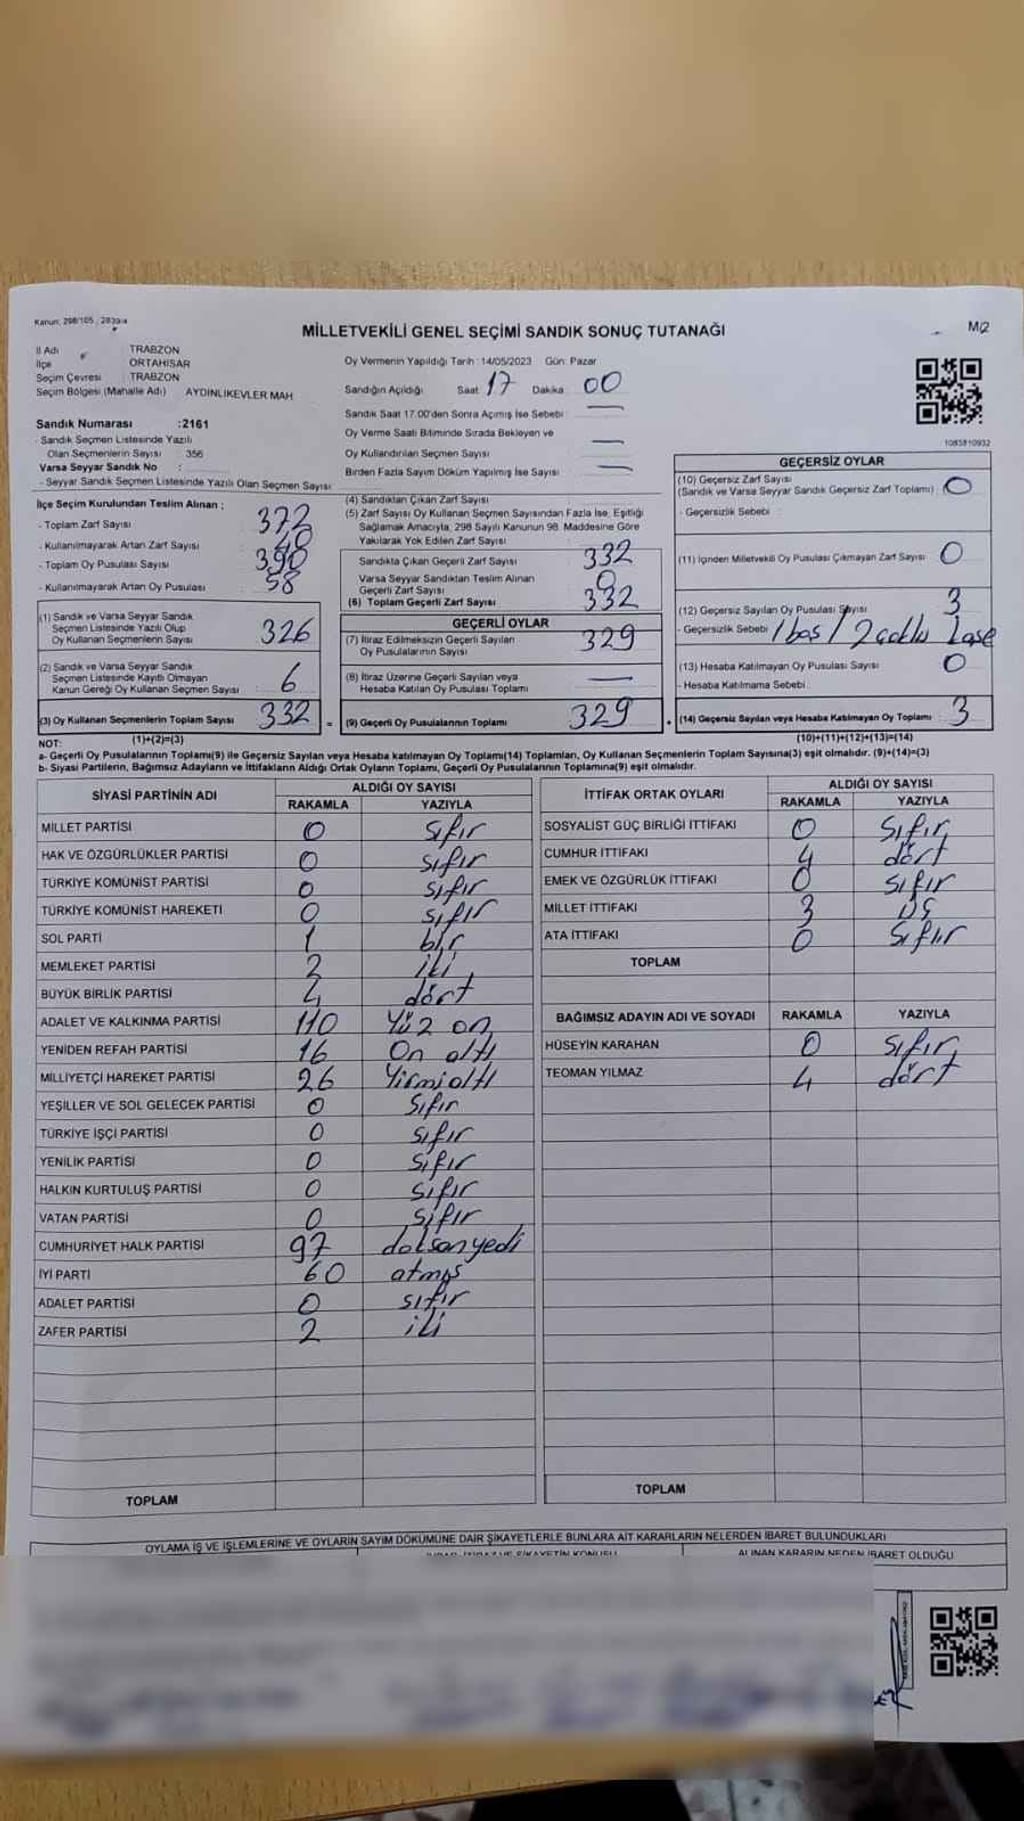 Kanun: 298/105
MİLLETVEKİLİ GENEL SEÇİMİ SANDIK SONUÇ TUTANAĞI
M/2
İl Adı TRABZON
İlçe ORTAHİSAR
Seçim Çevresi TRABZON
Seçim Bölgesi (Mahalle Adı) AYDINLIKEVLER MAH
Sandık Numarası :2161
- Sandık Seçmen Listesinde Yazılı
Olan Seçmenlerin Sayısı 356
Varsa Seyyar Sandık No :
- Seyyar Sandık Seçmen Listesinde Yazılı Olan Seçmen Sayısı
Oy Vermenin Yapıldığı Tarih : 14/05/2023 Gün: Pazar
Sandığın Açıldığı Saat 17 Dakika 00
Sandık Saat 17.00'den Sonra Açımış İse Sebebi —
Oy Verme Saati Bitiminde Sırada Bekleyen ve
Oy Kullandırılan Seçmen Sayısı —
Birden Fazla Sayım Döküm Yapılmış İse Sayısı —
1083810932
İlçe Seçim Kurulundan Teslim Alınan :
- Toplam Zarf Sayısı 372
- Kullanılmayarak Artan Zarf Sayısı 40
- Toplam Oy Pusulası Sayısı 390
- Kullanılmayarak Artan Oy Pusulası 58
(1) Sandık ve Varsa Seyyar Sandık
Seçmen Listesinde Yazılı Olup
Oy Kullanan Seçmenlerin Sayısı 326
(2) Sandık ve Varsa Seyyar Sandık
Seçmen Listesinde Kayıtlı Olmayan
Kanun Gereği Oy Kullanan Seçmen Sayısı 6
(3) Oy Kullanan Seçmenlerin Toplam Sayısı 332
(4) Sandıktan Çıkan Zarf Sayısı
(5) Zarf Sayısı Oy Kullanan Seçmen Sayısından Fazla İse, Eşitliği
Sağlamak Amacıyla, 298 Sayılı Kanunun 98. Maddesine Göre
Yakılarak Yok Edilen Zarf Sayısı
Sandıkta Çıkan Geçerli Zarf Sayısı 332
Varsa Seyyar Sandıktan Teslim Alınan
Geçerli Zarf Sayısı 0
(6) Toplam Geçerli Zarf Sayısı 332
GEÇERLİ OYLAR
(7) İtiraz Edilmeksizin Geçerli Sayılan
Oy Pusulalarının Sayısı 329
(8) İtiraz Üzerine Geçerli Sayılan veya
Hesaba Katılan Oy Pusulası Toplamı —
= (9) Geçerli Oy Pusulalarının Toplamı 329
GEÇERSİZ OYLAR
(10) Geçersiz Zarf Sayısı
(Sandık ve Varsa Seyyar Sandık Geçersiz Zarf Toplamı) 0
- Geçersizlik Sebebi
(11) İçinden Milletvekili Oy Pusulası Çıkmayan Zarf Sayısı 0
(12) Geçersiz Sayılan Oy Pusulası Sayısı 3
- Geçersizlik Sebebi 1 boş / 2 çoklu kaşe
(13) Hesaba Katılmayan Oy Pusulası Sayısı 0
- Hesaba Katılmama Sebebi
(14) Geçersiz Sayılan veya Hesaba Katılmayan Oy Toplamı 3
NOT: (1)+(2)=(3)
(10)+(11)+(12)+(13)=(14)
a- Geçerli Oy Pusulalarının Toplamı(9) ile Geçersiz Sayılan veya Hesaba katılmayan Oy Toplamı(14) Toplamları, Oy Kullanan Seçmenlerin Toplam Sayısına(3) eşit olmalıdır. (9)+(14)=(3)
b- Siyasi Partilerin, Bağımsız Adayların ve İttifakların Aldığı Ortak Oyların Toplamı, Geçerli Oy Pusulalarının Toplamına(9) eşit olmalıdır.
SİYASİ PARTİNİN ADI ALDIĞI OY SAYISI
RAKAMLA YAZIYLA
MİLLET PARTİSİ 0 sıfır
HAK VE ÖZGÜRLÜKLER PARTİSİ 0 sıfır
TÜRKİYE KOMÜNİST PARTİSİ 0 sıfır
TÜRKİYE KOMÜNİST HAREKETİ 0 sıfır
SOL PARTİ 1 bir
MEMLEKET PARTİSİ 2 iki
BÜYÜK BİRLİK PARTİSİ 4 dört
ADALET VE KALKINMA PARTİSİ 110 Yüz on
YENİDEN REFAH PARTİSİ 16 On altı
MİLLİYETÇİ HAREKET PARTİSİ 26 Yirmi altı
YEŞİLLER VE SOL GELECEK PARTİSİ 0 Sıfır
TÜRKİYE İŞÇİ PARTİSİ 0 sıfır
YENİLİK PARTİSİ 0 sıfır
HALKIN KURTULUŞ PARTİSİ 0 sıfır
VATAN PARTİSİ 0 sıfır
CUMHURİYET HALK PARTİSİ 97 doksan yedi
İYİ PARTİ 60 atmış
ADALET PARTİSİ 0 sıfır
ZAFER PARTİSİ 2 iki
TOPLAM
İTTİFAK ORTAK OYLARI ALDIĞI OY SAYISI
RAKAMLA YAZIYLA
SOSYALİST GÜÇ BİRLİĞİ İTTİFAKI 0 Sıfır
CUMHUR İTTİFAKI 4 dört
EMEK VE ÖZGÜRLÜK İTTİFAKI 0 sıfır
MİLLET İTTİFAKI 3 üç
ATA İTTİFAKI 0 sıfır
TOPLAM
BAĞIMSIZ ADAYIN ADI VE SOYADI RAKAMLA YAZIYLA
HÜSEYİN KARAHAN 0 sıfır
TEOMAN YILMAZ 4 dört
TOPLAM
OYLAMA İŞ VE İŞLEMLERİNE VE OYLARIN SAYIM DÖKÜMÜNE DAİR ŞİKAYETLERLE BUNLARA AİT KARARLARIN NELERDEN İBARET BULUNDUKLARI
ALINAN KARARIN NEDEN İBARET OLDUĞU